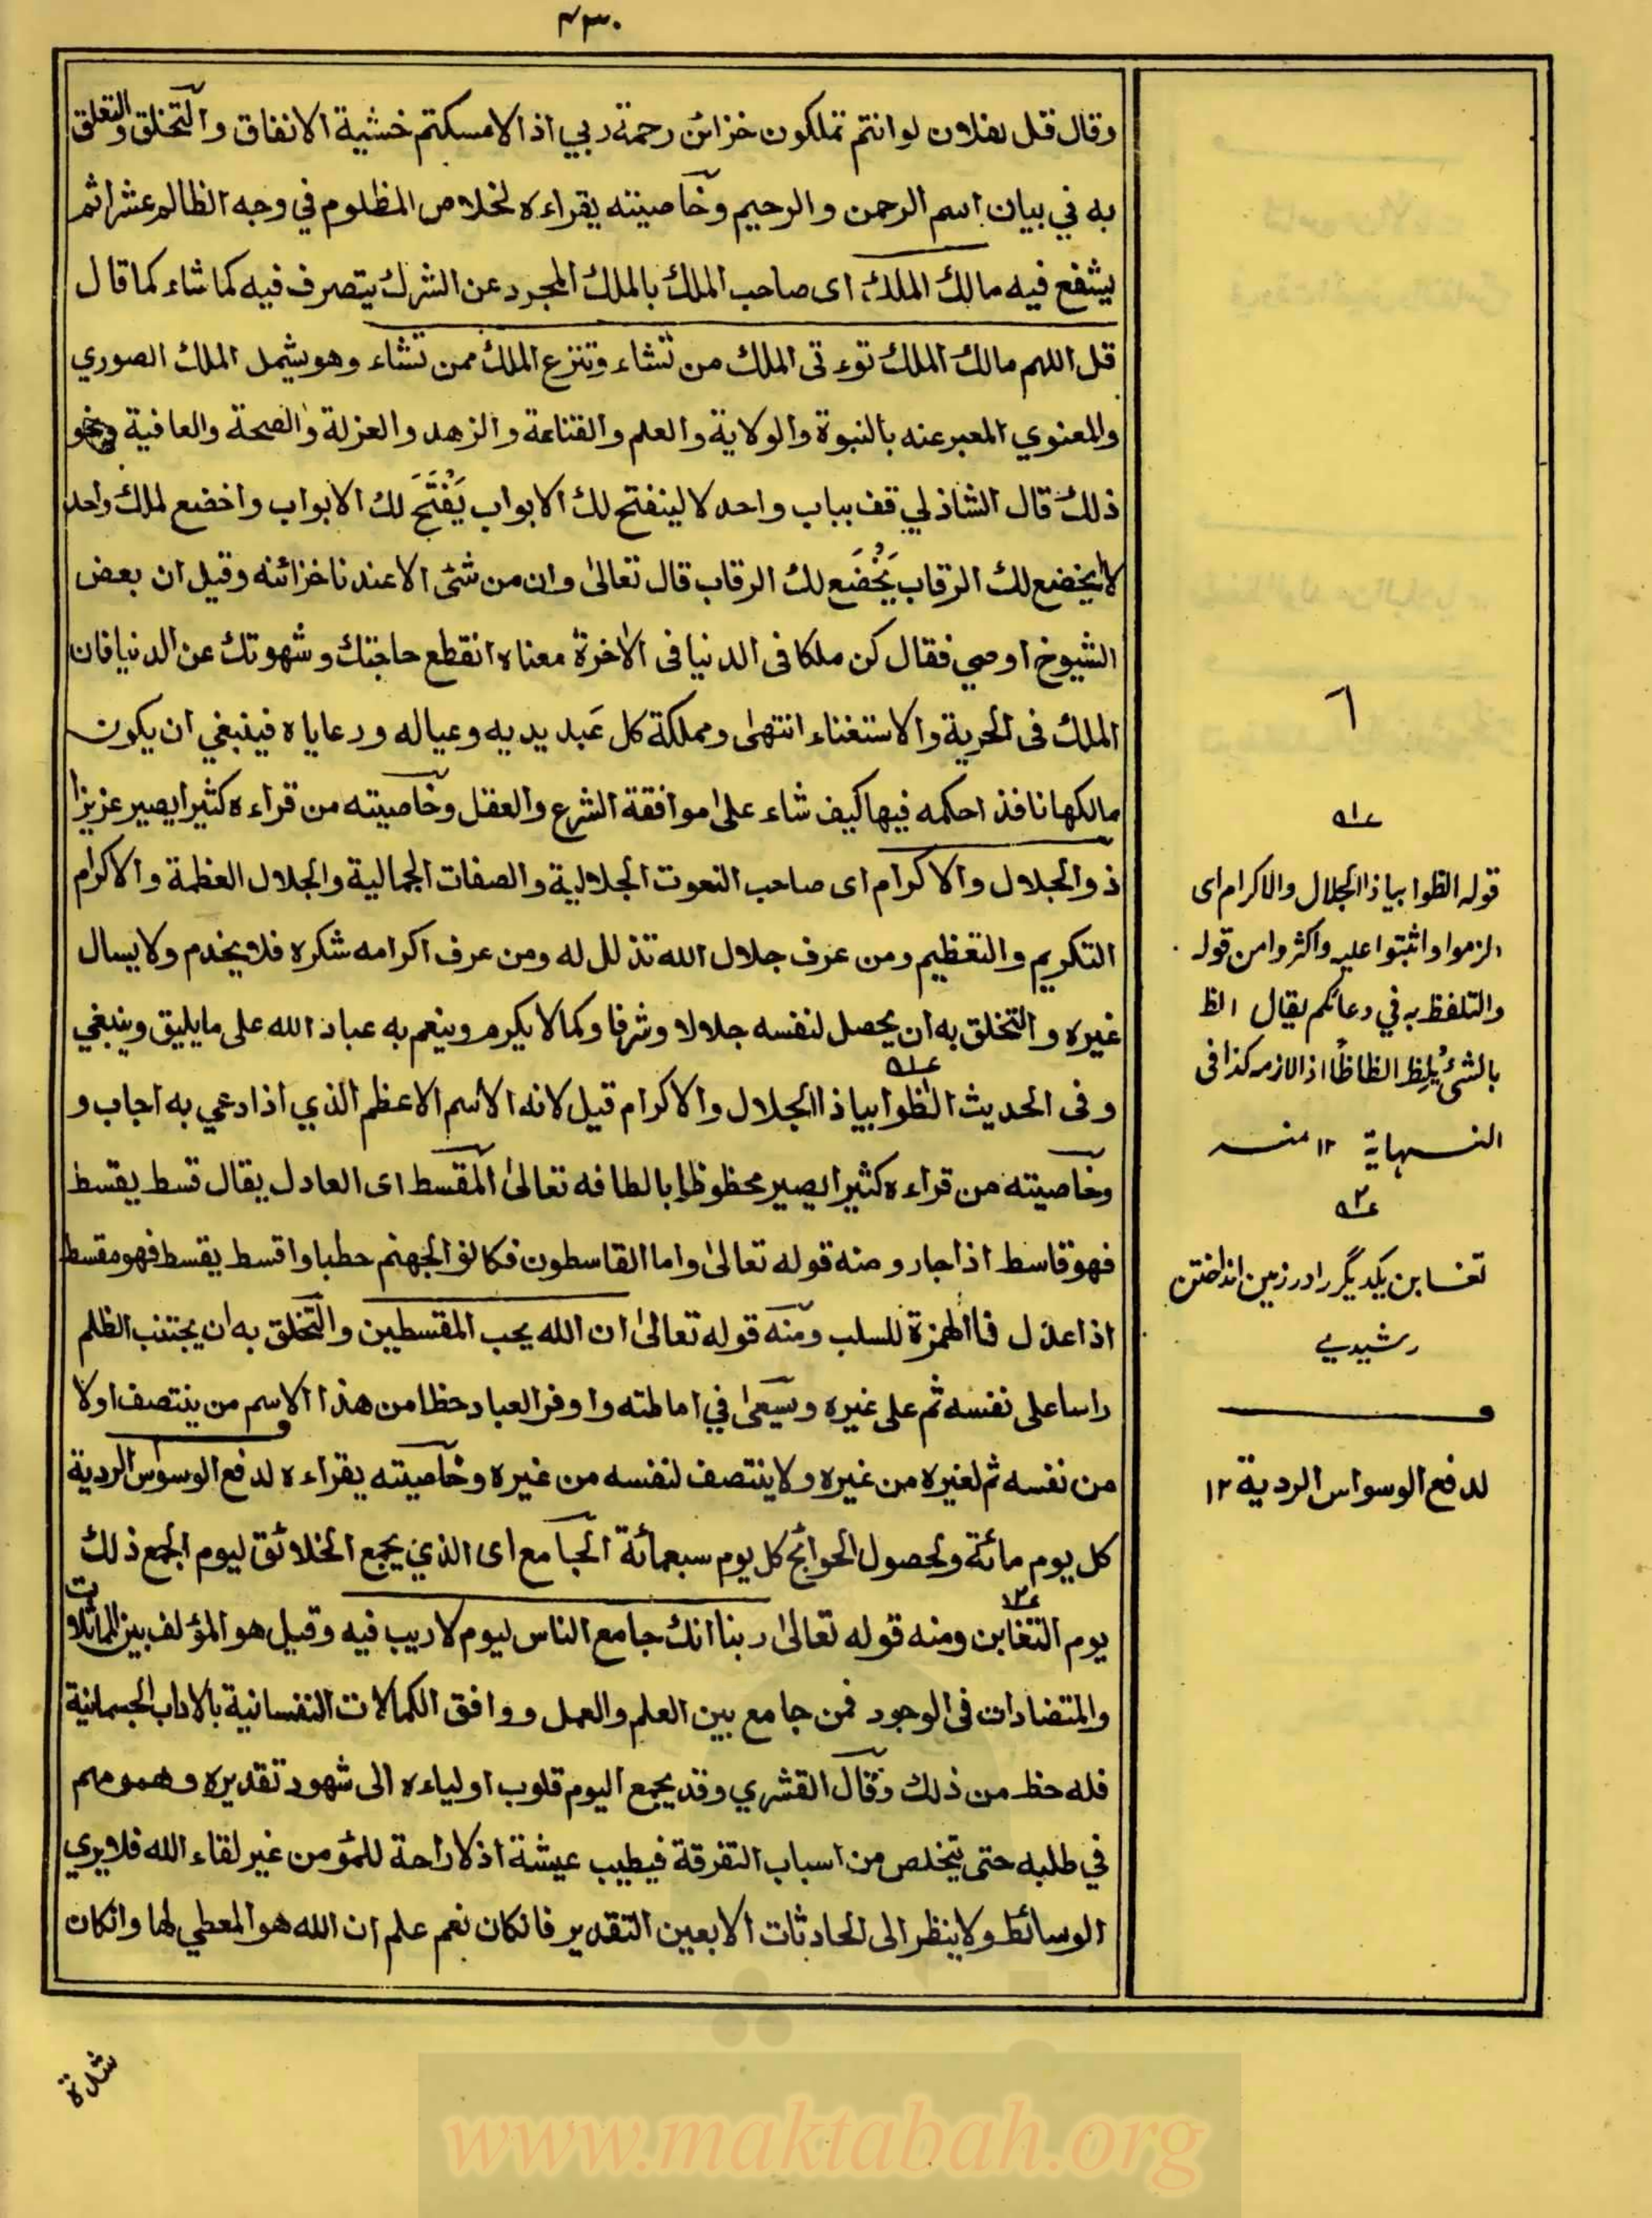 ٤٣٠
وقال قل لفلان لو انتم تملكون خزائن رحمة ربي اذا لامسكتم خشية الانفاق والتخلق والتعلق
به في بيان اسم الرحمن والرحيم وخاصيته يقراءه لخلاص المظلوم في وجه الظالم عشرا ثم
يشفع فيه مالك الملك اى صاحب الملك بالملك المجرد عن الشرك يتصرف فيه كما شاء كما قال
قل اللهم مالك الملك توءتى الملك من تشاء وتنزع الملك ممن تشاء وهو يشمل الملك الصوري
والمعنوي المعبر عنه بالنبوة والولاية والعلم والقناعة والزهد والعزلة والصحة والعافية ونحو
ذلك قال الشاذلي قف بباب واحد لا لينفتح لك الابواب يُفْتَحَ لك الابواب واخضع لملك واحد
لا ليخضع لك الرقاب يُخْضَع لك الرقاب قال تعالى وان من شئ الا عندنا خزائنه وقيل ان بعض
الشيوخ اوصي فقال كن ملكا فى الدنيا فى الاخرة معناه انقطع حاجتك وشهوتك عن الدنيا فان
الملك فى الحرية والاستغناء انتهى ومملكة كل عبد يديه وعياله ورعاياه فينبغي ان يكون
مالكها نافذا حكمه فيها كيف شاء على موافقة الشرع والعقل وخاصيته من قراءه كثيرا يصير عزيزا
ذو الجلال والاكرام اى صاحب النعوت الجلالية والصفات الجمالية والجلال العظمة والاكرام
التكريم والتعظيم ومن عرف جلال الله تذلل له ومن عرف اكرامه شكره فلا يخدم ولا يسال
غيره والتخلق به ان يحصل لنفسه جلالا وشرفا وكمالا يكرم وينعم به عباد الله على ما يليق وينبغي
وفى الحديث الظوا بيا ذا الجلال والاكرام قيل لانه الاسم الاعظم الذي اذا دعي به اجاب و
وخاصيته من قراءه كثيرا يصير محظوظا بالطافه تعالى المقسط اى العادل يقال قسط يقسط
فهو قاسط اذا جار ومنه قوله تعالى واما القاسطون فكانوا لجهنم حطبا واقسط يقسط فهو مقسط
اذا عدل فالهمزة للسلب ومنه قوله تعالى ان الله يحب المقسطين والتخلق به ان يجتنب الظلم
راسا على نفسه ثم على غيره ويسعى في اماطته واوفر العباد حظا من هذا الاسم من ينتصف اولا
من نفسه ثم لغيره من غيره ولا ينتصف لنفسه من غيره وخاصيته يقراءه لدفع الوسواس الردية
كل يوم مائة ولحصول الحوائج كل يوم سبعمائة الجامع اى الذي يجمع الخلائق ليوم الجمع ذلك
يوم التغابن ومنه قوله تعالى ربنا انك جامع الناس ليوم لا ريب فيه وقيل هو المؤلف بين المماثلات
والمتضادات فى الوجود فمن جامع بين العلم والعمل ووافق الكمالات النفسانية بالاداب الجسمانية
فله حظ من ذلك وقال القشري وقد يجمع اليوم قلوب اولياءه الى شهود تقديره وهمومهم
في طلبه حتى يتخلص من اسباب التفرقة فيطيب عيشة اذ لا راحة للمؤمن غير لقاء الله فلا يري
الوسائط ولا ينظر الى الحادثات الا بعين التقدير فان كان نعم علم ان الله هو المعطي لها وان كان
٦
عـ١ـه
قوله الظوا بيا ذا الجلال والاكرام اى
الزموا واثبتوا عليه واكثروا من قوله
والتلفظ به في دعائكم يقال الظ
بالشئ يُلِظ الظاظًا اذا لازمه كذا فى
النهاية ١٢ منه
عـ٢ـه
تغابن يكديگر را در زمين انداختن
رشيدي
لدفع الوسواس الردية ١٢
شدة
www.maktabah.org